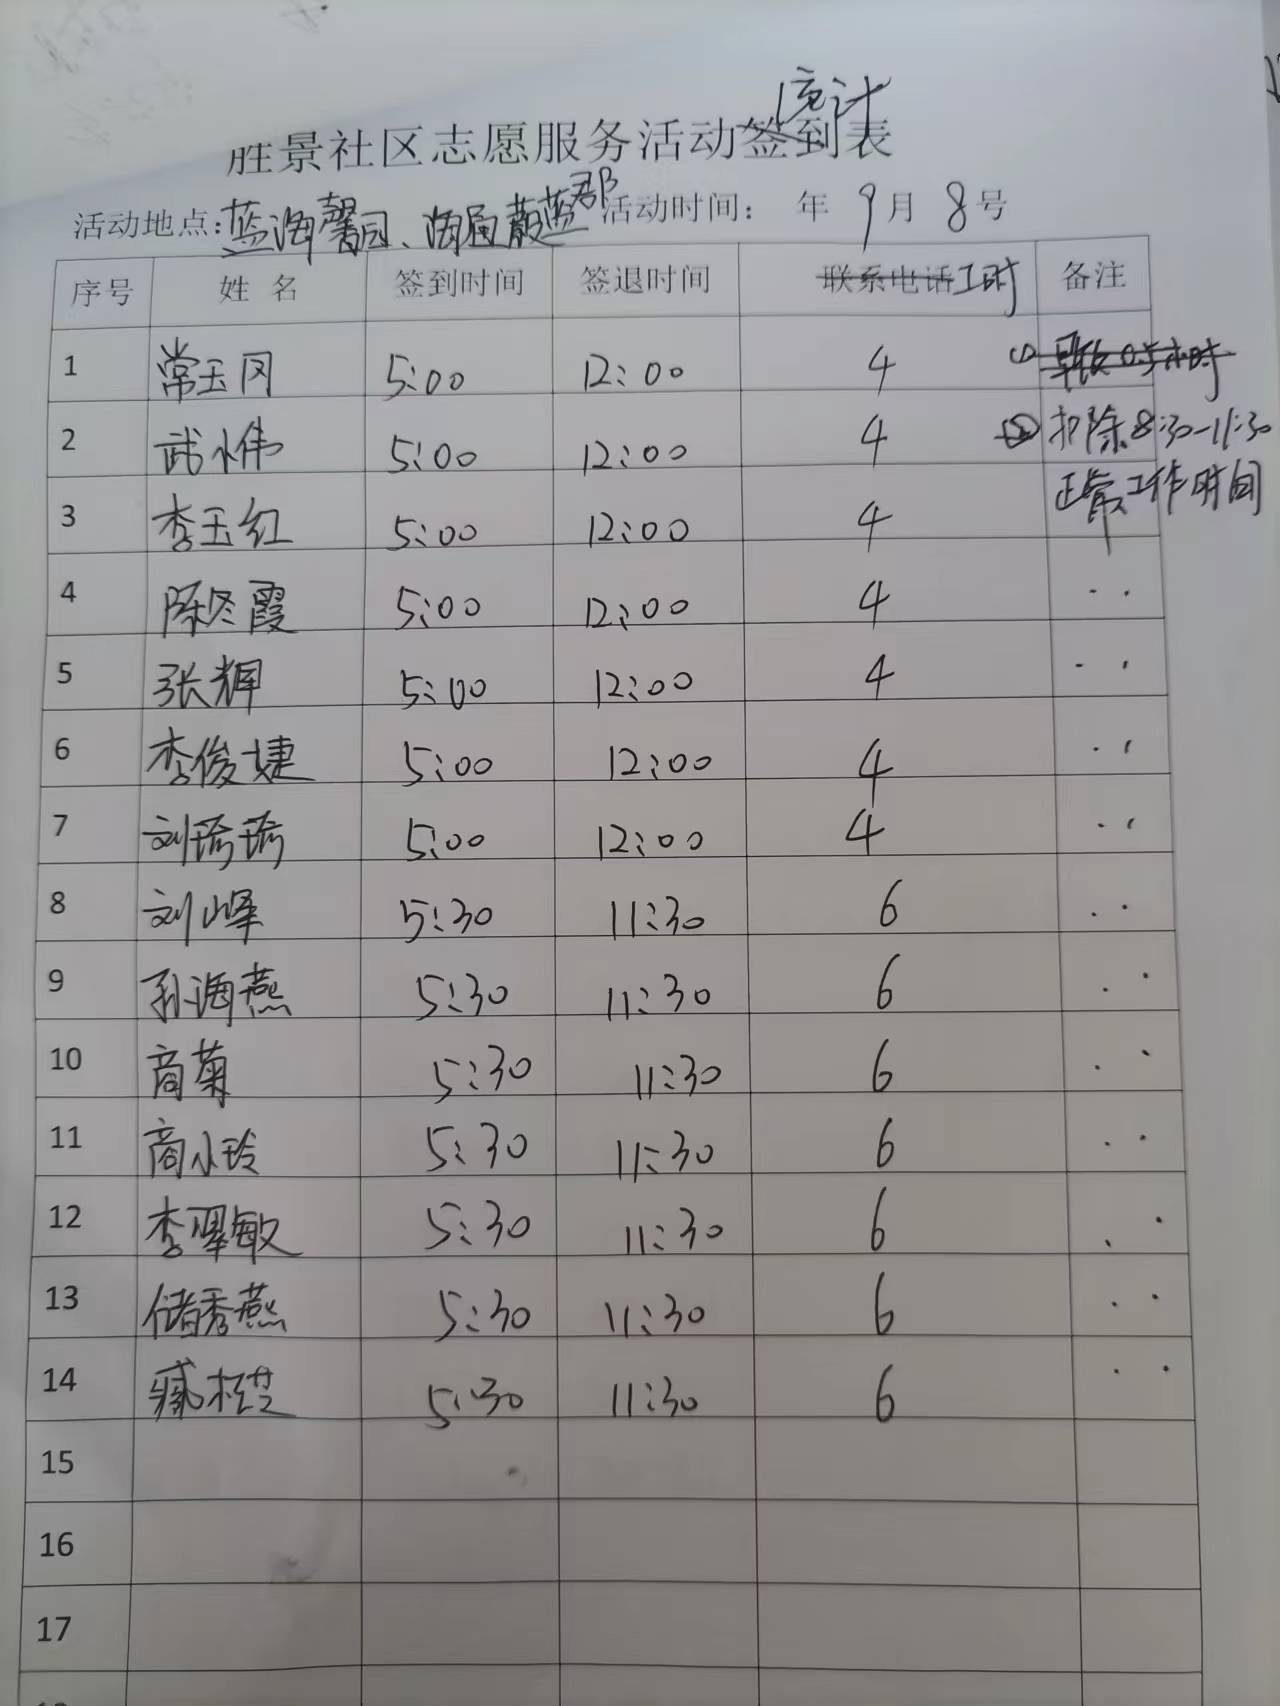 统计
胜景社区志愿服务活动签到表
活动地点:蓝海馨园、海屆蔚蓝郡 活动时间: 年 9月 8号
序号 姓名 签到时间 签退时间 联系电话工时 备注
1 常玉冈 5:00 12:00 4
2 武小伟 5:00 12:00 4 扣除8:30-11:30
3 李玉红 5:00 12:00 4 正常工作时间
4 陈冬霞 5:00 12:00 4
5 张辉 5:00 12:00 4
6 李俊婕 5:00 12:00 4
7 刘琦琦 5:00 12:00 4
8 刘峰 5:30 11:30 6
9 孙海燕 5:30 11:30 6
10 商菊 5:30 11:30 6
11 商小玲 5:30 11:30 6
12 李翠敏 5:30 11:30 6
13 储秀燕 5:30 11:30 6
14 臧 5:30 11:30 6
15
16
17